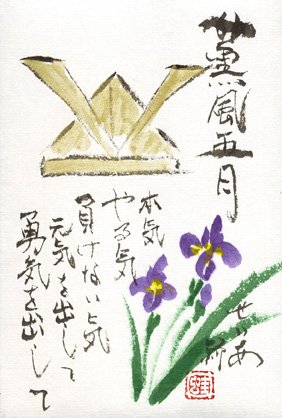 薫風五月
本気
やる気
負けないと気
元気を出して
勇気を出して